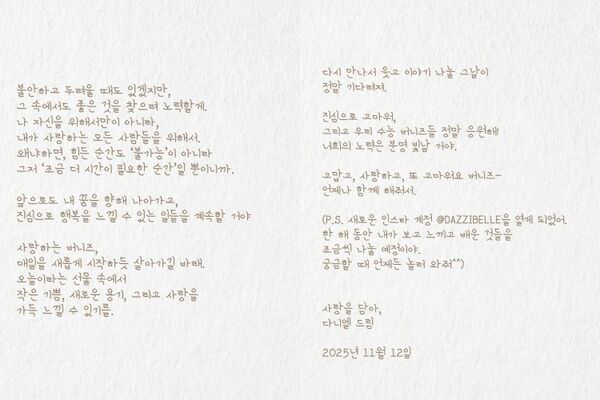 불안하고 두려울 때도 있겠지만,
그 속에서도 좋은 것을 찾으려 노력할게.
나 자신을 위해서만이 아니라,
내가 사랑하는 모든 사람들을 위해서.
왜냐하면, 힘든 순간도 '불가능'이 아니라
그저 '조금 더 시간이 필요한 순간'일 뿐이니까.
앞으로도 내 꿈을 향해 나아가고,
진심으로 행복을 느낄 수 있는 일들을 계속할 거야
사랑하는 버니즈,
매일을 새롭게 시작하듯 살아가길 바래.
오늘이라는 선물 속에서
작은 기쁨, 새로운 용기, 그리고 사랑을
가득 느낄 수 있기를.
다시 만나서 웃고 이야기 나눌 그날이
정말 기다려져.
진심으로 고마워,
그리고 우리 수능 버니즈들 정말 응원해!
너희의 노력은 분명 빛날 거야.
고맙고, 사랑하고, 또 고마워요 버니즈-
언제나 함께 해줘서.
(P.S. 새로운 인스타 계정 @DAZZIBELLE을 열게 되었어.
한 해 동안 내가 보고 느끼고 배운 것들을
조금씩 나눌 예정이야.
궁금할 때 언제든 놀러 와줘^^)
사랑을 담아,
다니엘 드림
2025년 11월 12일